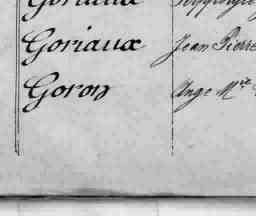 Goriaux Jean Pierre
Goron Ange Mie